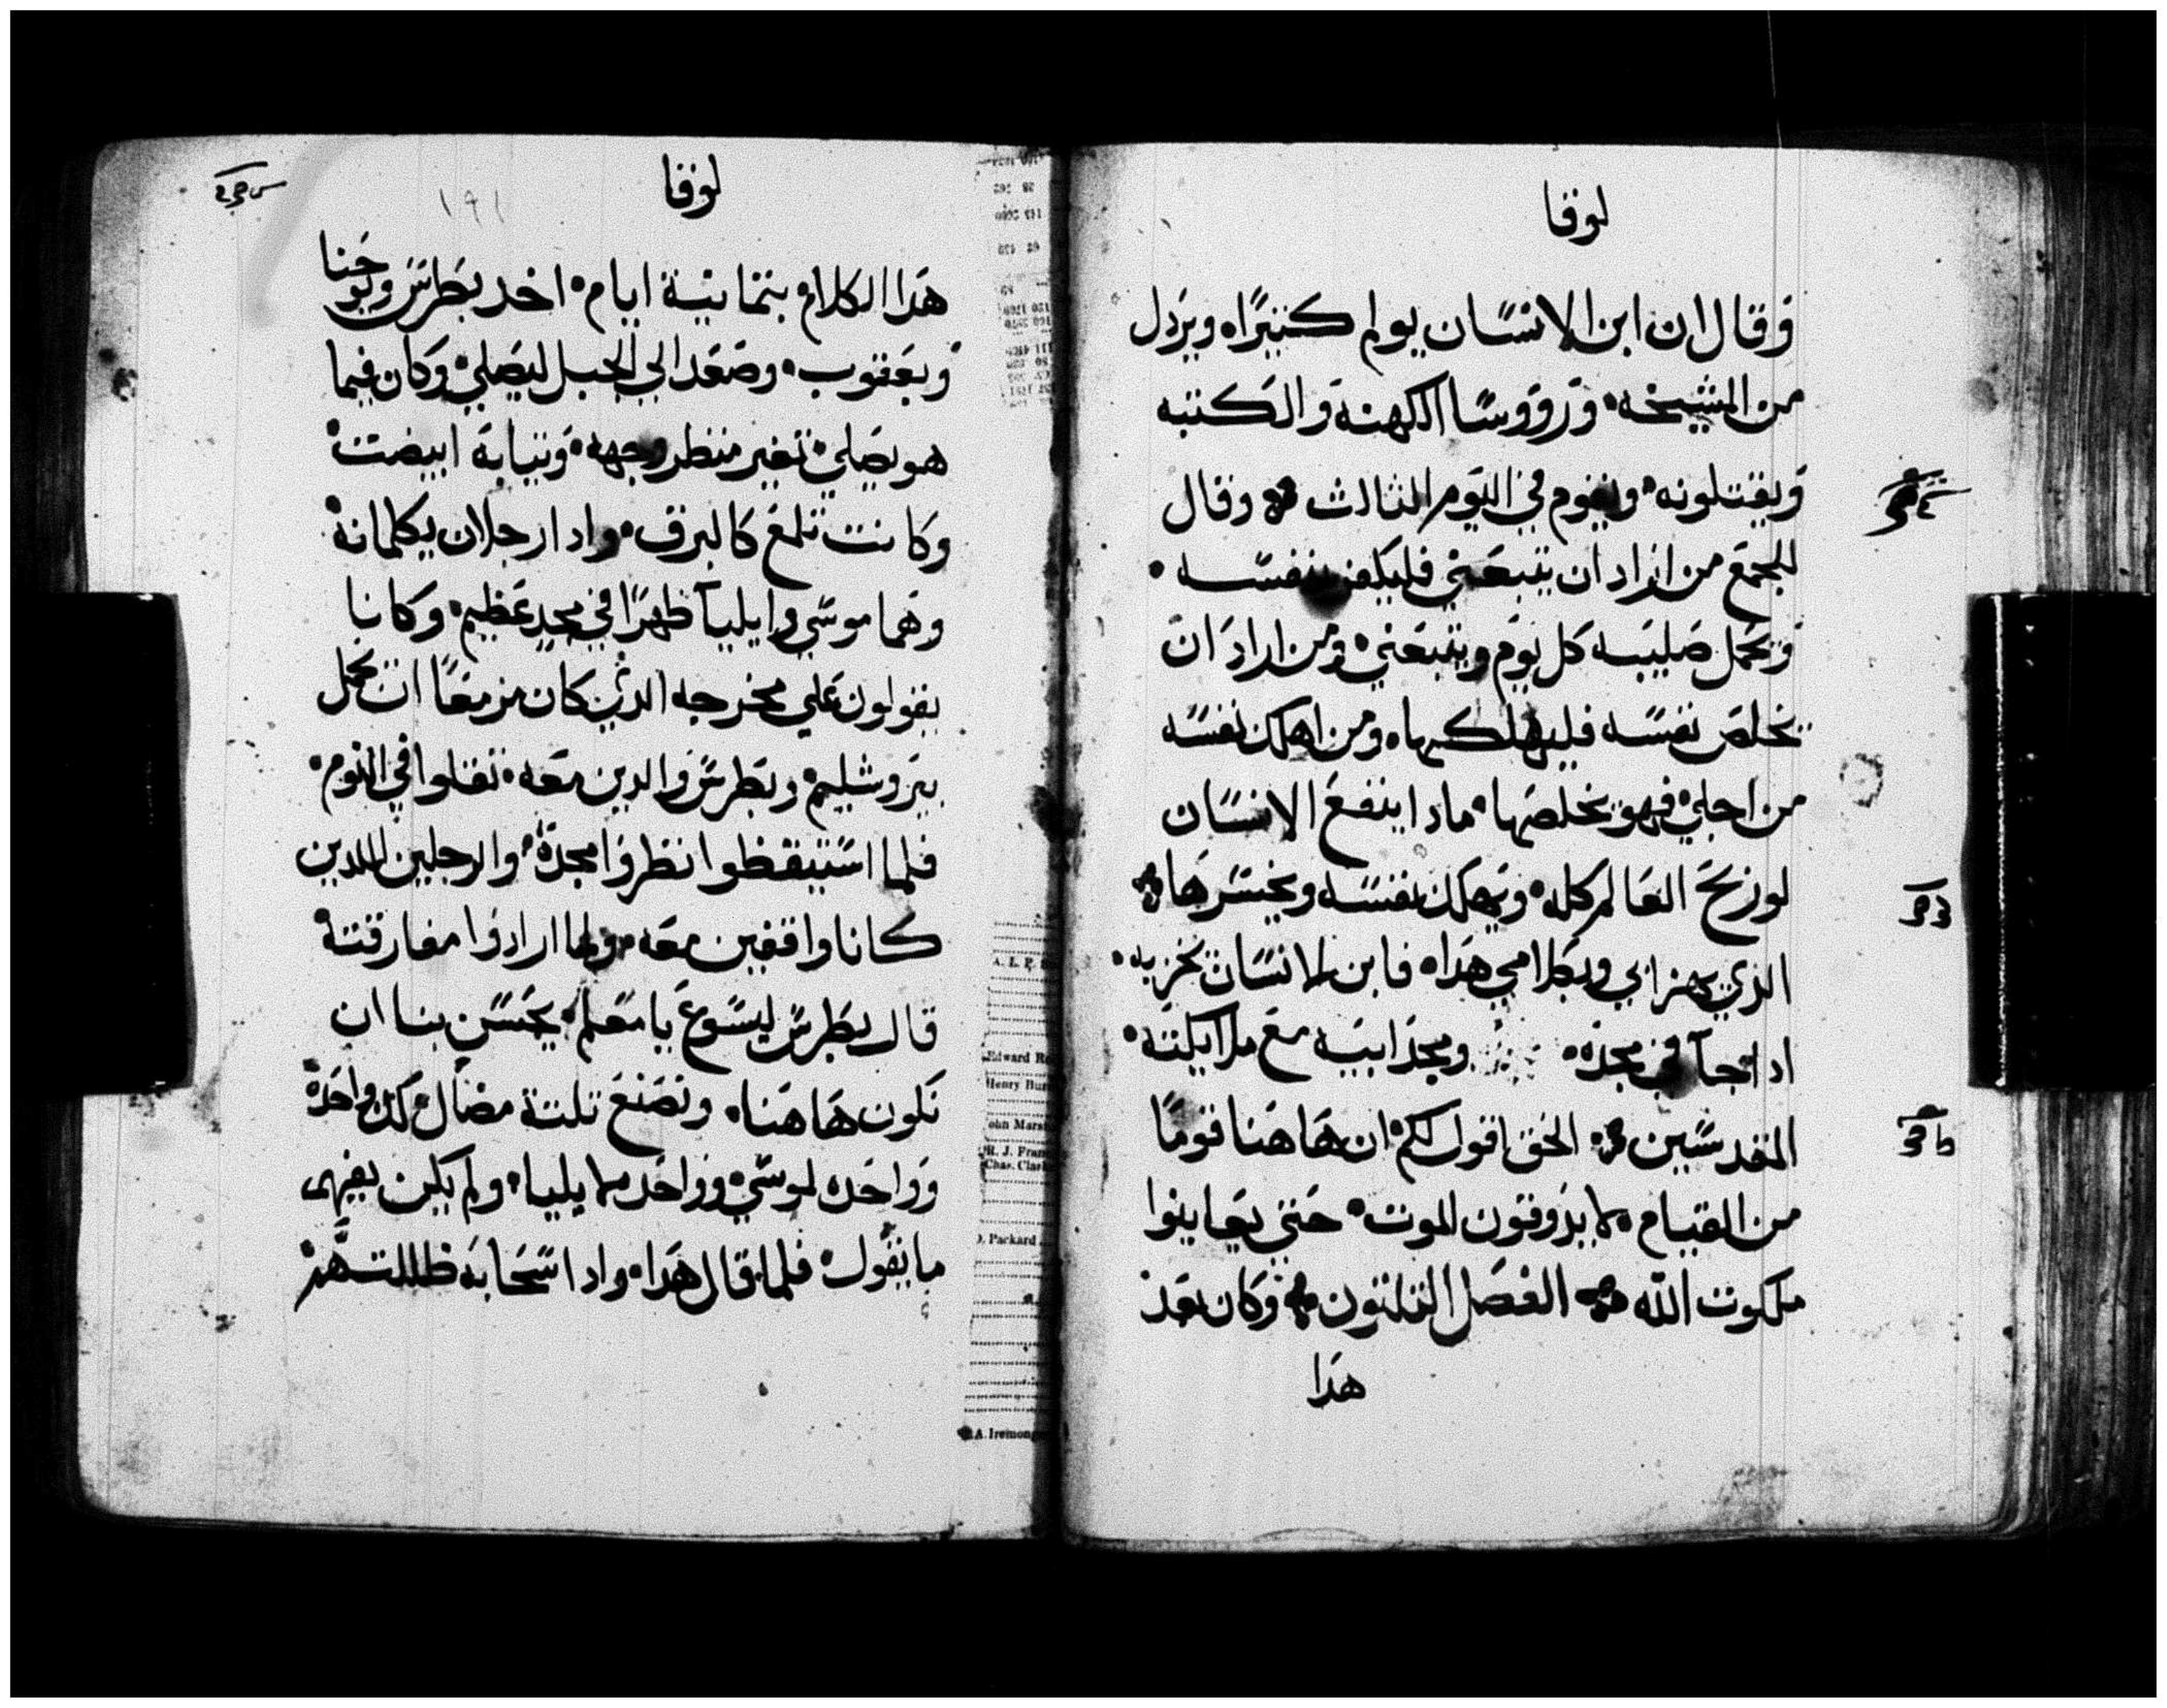 لوقا
وقال ان ابن الانسان يولم كثيرًا، ويردل
من المشيخه، ورووسا الكهنة والكتبه
ويقتلونه، ويقوم في اليوم الثالث وقال
للجمع من اراد ان يتبعني فليكفر بنفسه
ويحمل صليبه كل يوم ويتبعني، ومن اراد ان
يخلص نفسه فليهلكها، ومن اهلك نفسه
من اجلي فهو يخلصها، مادا ينفع الانسان
لو ربح العالم كله، ويهلك نفسه ويخسرها
الذي يهزا بي وبكلامي هذا، فابن الانسان يخزيه
ادا جآ في مجده، ومجد ابيه مع ملايكته
المقدسين الحق اقول لكم، ان هاهنا قومًا
من القيام، لا يذوقون الموت، حتي يعاينوا
ملكوت الله الفصل التلتون وكان بعد
هدا
لوقا
١٩١
هدا الكلام بتمانية ايام، اخد بطرس ويوحنا
ويعقوب، وصعد الي الجبل ليصلي، وكان فيما
هو يصلي، تغير منظر وجهه، وتيابة ابيضت
وكانت تلمع كالبرق، وادا رجلان يكلمانه
وهما موسي وايليآ ظهرًا في مجد عظيم، وكانا
يقولون علي مخرجه الدي كان مزمعًا ان يكمل
بيروشليم، وبطرس والدين معه، تقلوا في النوم
فلما استيقظوا نظروا مجده، والرجلين اللدين
كانا واقفين معه، ولما ارادوا مفارقتة
قال بطرس ليسوع يا معلم، يحسن بنا ان
نكون هاهنا، ونصنع تلتة مضال، لك واحده
وواحده لموسي، وواحده لايليا، ولم يكن يفهم
ما يقول، فلما قال هدا، وادا سحابه ظللتهم
A. L. P.
Edward
Henry
John
R. J.
Chas.
Packard
A. Iremong